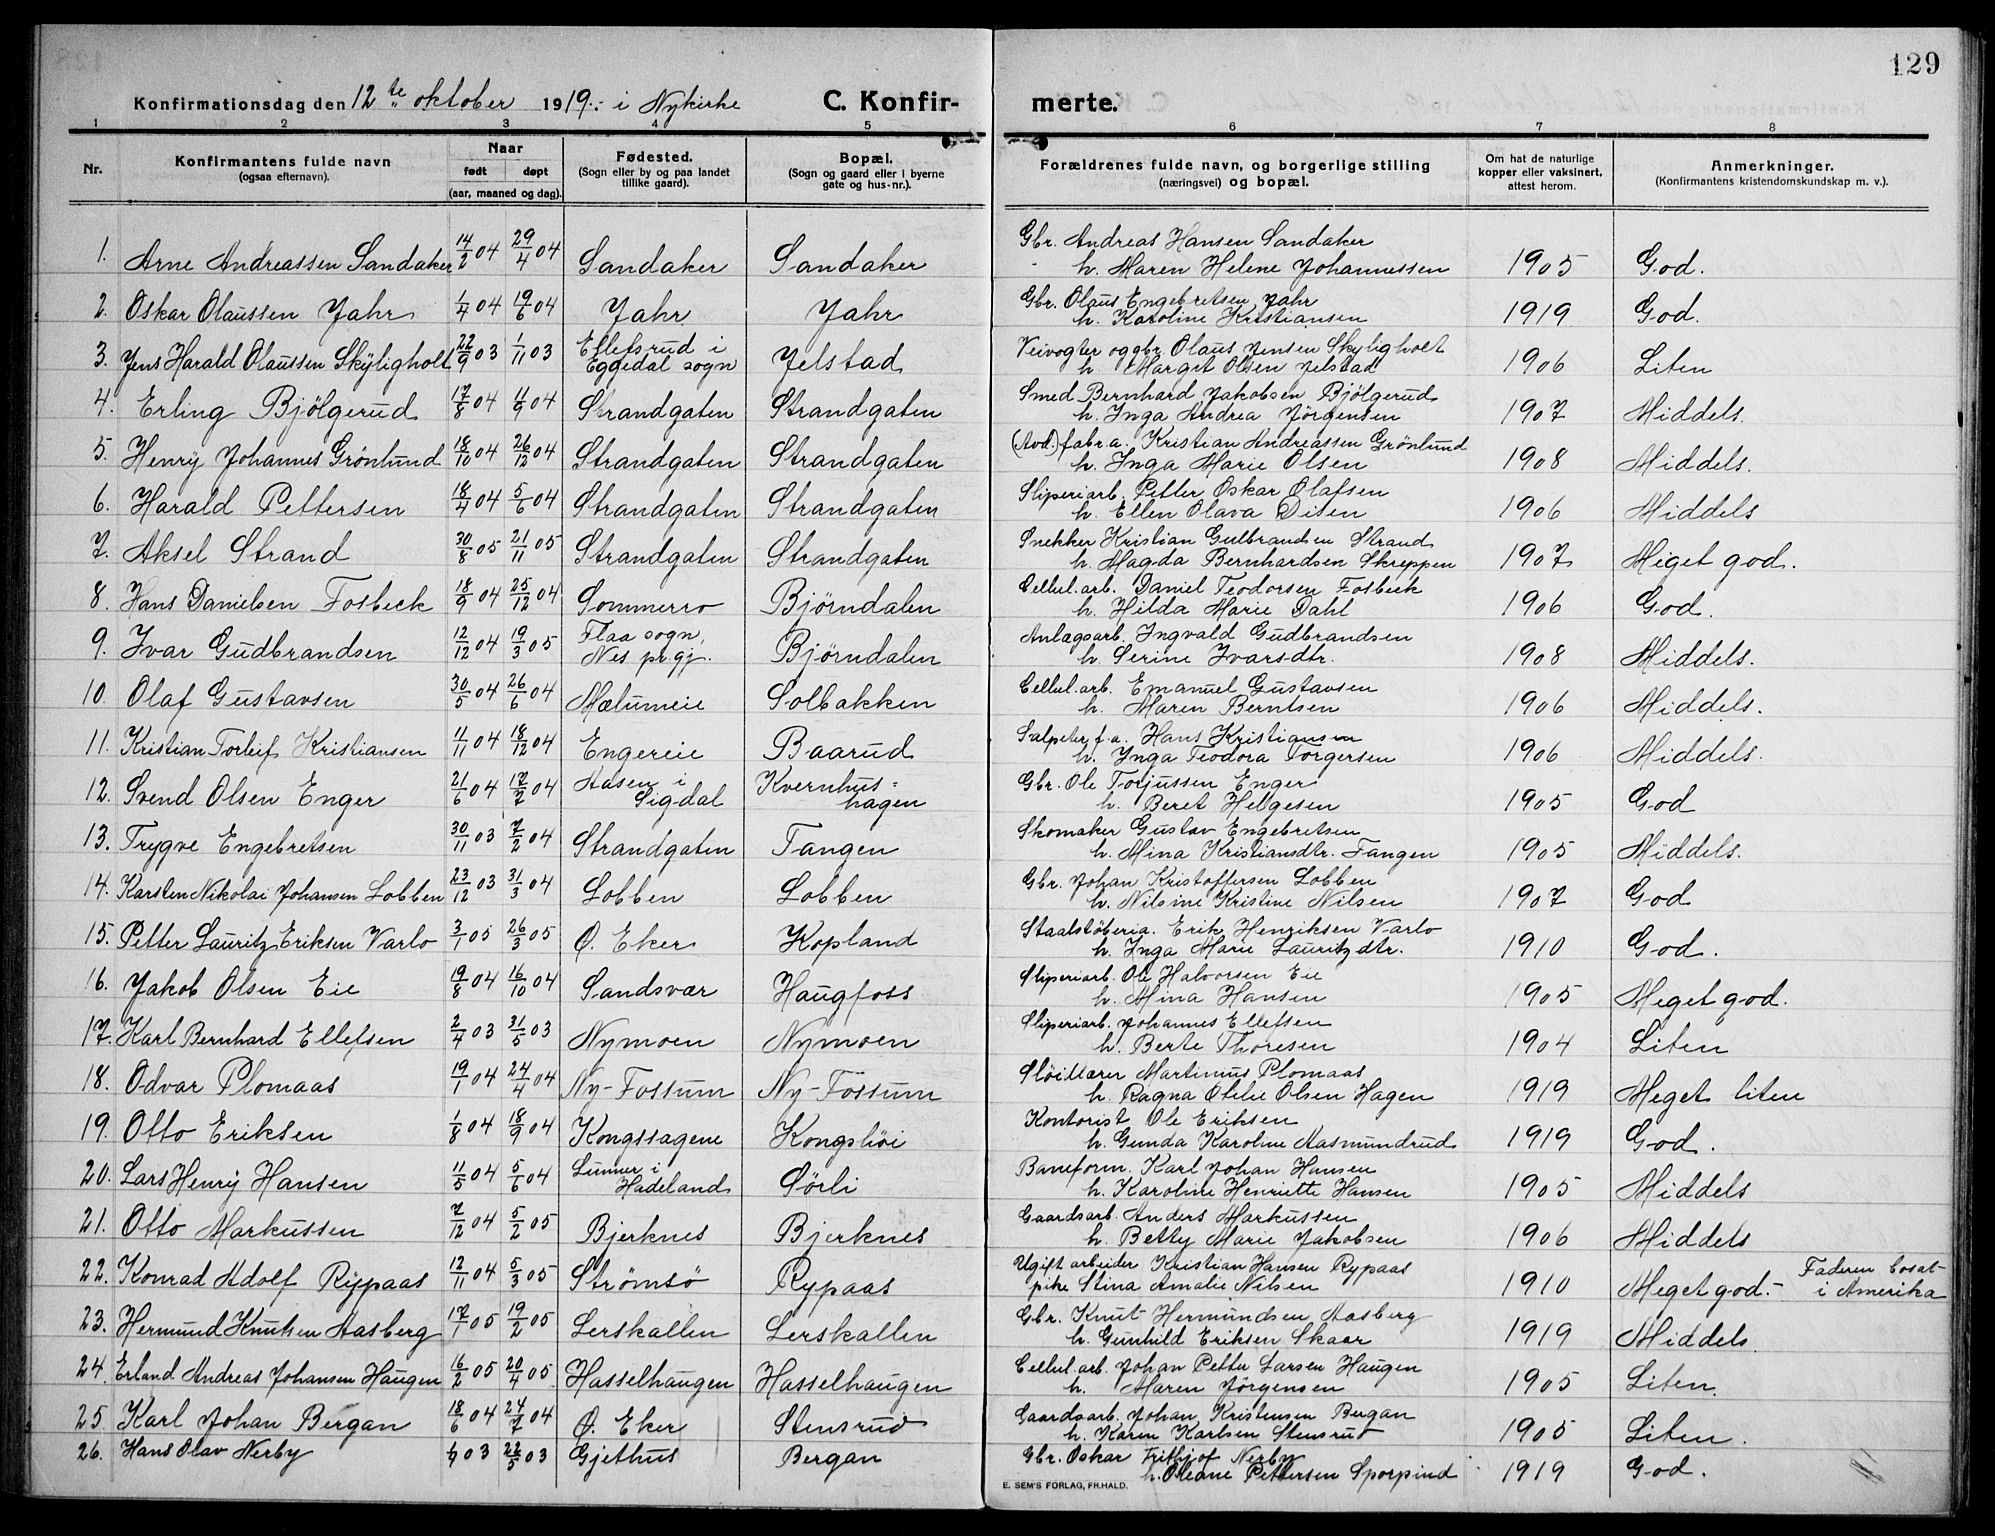 129
Konfirmationsdag den 12te oktober 1919.- i Nykirke C. Konfir- merte.
1 2 3 4 5 6 7 8
Nr. Konfirmantens fulde navn (ogsaa efternavn). Naar født døpt (aar, maaned og dag). Fødested. (Sogn eller by og paa landet tillike gaard). Bopæl. (Sogn og gaard eller i byerne gate og hus-nr.). Forældrenes fulde navn, og borgerlige stilling (næringsvei) og bopæl. Om hat de naturlige kopper eller vaksinert, attest herom. Anmerkninger. (Konfirmantens kristendomskundskap m. v.).
1. Arne Andreassen Sandaker 14/2 04 29/4 04 Sandaker Sandaker Gbr. Andreas Hansen Sandaker
h. Maren Helene Johannessen 1905 God.
2. Oskar Olaussen Jahr 1/4 04 19/6 04 Jahr Jahr Gbr. Olaus Engebretsen Jahr
h. Karoline Kristiansen 1919 God.
3. Jens Harald Olaussen Skyligholt 22/9 03 1/11 03 Ellefsrud i Eggedal sogn Jelstad Veivogter og gbr. Olaus Jensen Skyligholt
h. Margit Olsen Jelstad 1906 Liten
4. Erling Bjölgerud 17/8 04 11/9 04 Strandgaten Strandgaten Smed Bernhard Jakobsen Bjölgerud
h. Inga Andrea Jørgensen 1907 Middels.
5. Henry Johannes Grönlund 18/10 04 26/12 04 Strandgaten Strandgaten (Avd.) fabr.a. Kristian Andreassen Grönlund
h. Inga Marie Olsen 1908 Middels.
6. Harald Pettersen 18/4 04 5/6 04 Strandgaten Strandgaten Sliperiarb. Petter Oskar Olafsen
h. Ellen Olava Disen 1906 Middels
7. Aksel Strand 30/8 05 21/11 05 Strandgaten Strandgaten Snekker Kristian Gulbrandsen Strand
h. Magda Bernhardsen Skreppen 1907 Meget god.
8. Hans Danielsen Fosbeck 18/9 04 25/12 04 Sommerro Bjørndalen Cellul. arb. Daniel Teodorsen Fosbeck
h. Hilda Marie Dahl 1906 God.
9. Ivar Gudbrandsen 12/12 04 19/3 05 Flaa sogn, Nes pr.gj. Bjørndalen Anlægsarb. Ingvald Gudbrandsen
h. Serine Ivarsdtr. 1908 Middels.
10. Olaf Gustavsen 30/5 04 26/6 04 Mælumeie Solbakken Cellul. arb. Emanuel Gustavsen
h. Maren Berntsen 1906 Middels.
11. Kristian Torleif Kristiansen 11/11 04 18/12 04 Engereie Baarud Salpeter f.a. Hans Kristiansen
h. Inga Teodora Torgersen 1906 Middels.
12. Svend Olsen Enger 21/6 04 17/7 04 Aasen i Sigdal Kvernhus= hagen Gbr. Ole Torjussen Enger
h. Beret Helgesen 1905 God
13. Trygve Engebretsen 30/11 03 7/2 04 Strandgaten Tangen Skomaker Gustav Engebretsen
h. Mina Kristiansdtr. Tangen 1905 Middels.
14. Karsten Nikolai Johansen Lobben 23/12 03 31/3 04 Lobben Lobben Gbr. Johan Kristoffersen Lobben
h. Nilsine Kristine Nilsen 1907 God
15. Petter Lauritz Eriksen Varlo 3/1 05 26/3 05 Ø. Eker Kopland Staalstöberia. Erik Henriksen Varlo
h. Inga Marie Lauritzdtr. 1910 God.
16. Jakob Olsen Eie 19/8 04 16/10 04 Sandsvær Haugfoss Sliperiarb. Ole Halvorsen Eie
h. Mina Hansen 1905 Meget god.
17. Karl Bernhard Ellefsen 2/4 03 31/5 03 Nymoen Nymoen Sliperiarb. Johannes Ellefsen
h. Berte Thoresen 1904 Liten
18. Odvar Plomaas 19/1 04 24/4 04 Ny-Fossum Ny-Fossum Sløilærer Martinus Plomaas
h. Ragna Otilie Olsen Hagen 1919 Meget liten
19. Otto Eriksen 1/8 04 18/9 04 Kongssagene Kongshöi Kontorist Ole Eriksen
h. Gunda Karoline Aasmundrud 1919 God.
20. Lars Henry Hansen 11/5 04 5/6 04 Lunner i Hadeland Sörli Baneform. Karl Johan Hansen
h. Karoline Henriette Hansen 1905 Middels
21. Otto Markussen 7/12 04 5/2 05 Bjerknes Bjerknes Gaardsarb. Anders Markussen
h. Betty Marie Jakobsen 1906 Middels
22. Konrad Adolf Rypaas 12/11 04 5/3 05 Strömsö Rypaas Ugift arbeider Kristian Hansen Rypaas
pike Stina Amalie Nilsen 1910 Meget god.- Faderen bosat i Amerika
23. Hermund Knutsen Aasberg 17/1 05 19/2 05 Lerskallen Lerskallen Gbr. Knut Hermundsen Aasberg
h. Gunhild Eriksen Skaar 1919 Middels
24. Erland Andreas Johansen Haugen 16/2 05 20/4 05 Hasselhaugen Hasselhaugen Cellul. arb. Johan Petter Larsen Haugen
h. Maren Jørgensen 1905 Liten.
25. Karl Johan Bergan 18/6 04 24/7 04 Ø. Eker Stensrud Gaardsarb. Johan Kristensen Bergan
h. Karen Karlsen Stensrud 1905 Liten.
26. Hans Olav Nerby 03 22/5 03 Gjethus Bergan Gbr. Oskar Fritjof Nerby
h. Oleane Pettersen Sporpind 1919 God.
E. SEM'S FORLAG, FR.HALD.